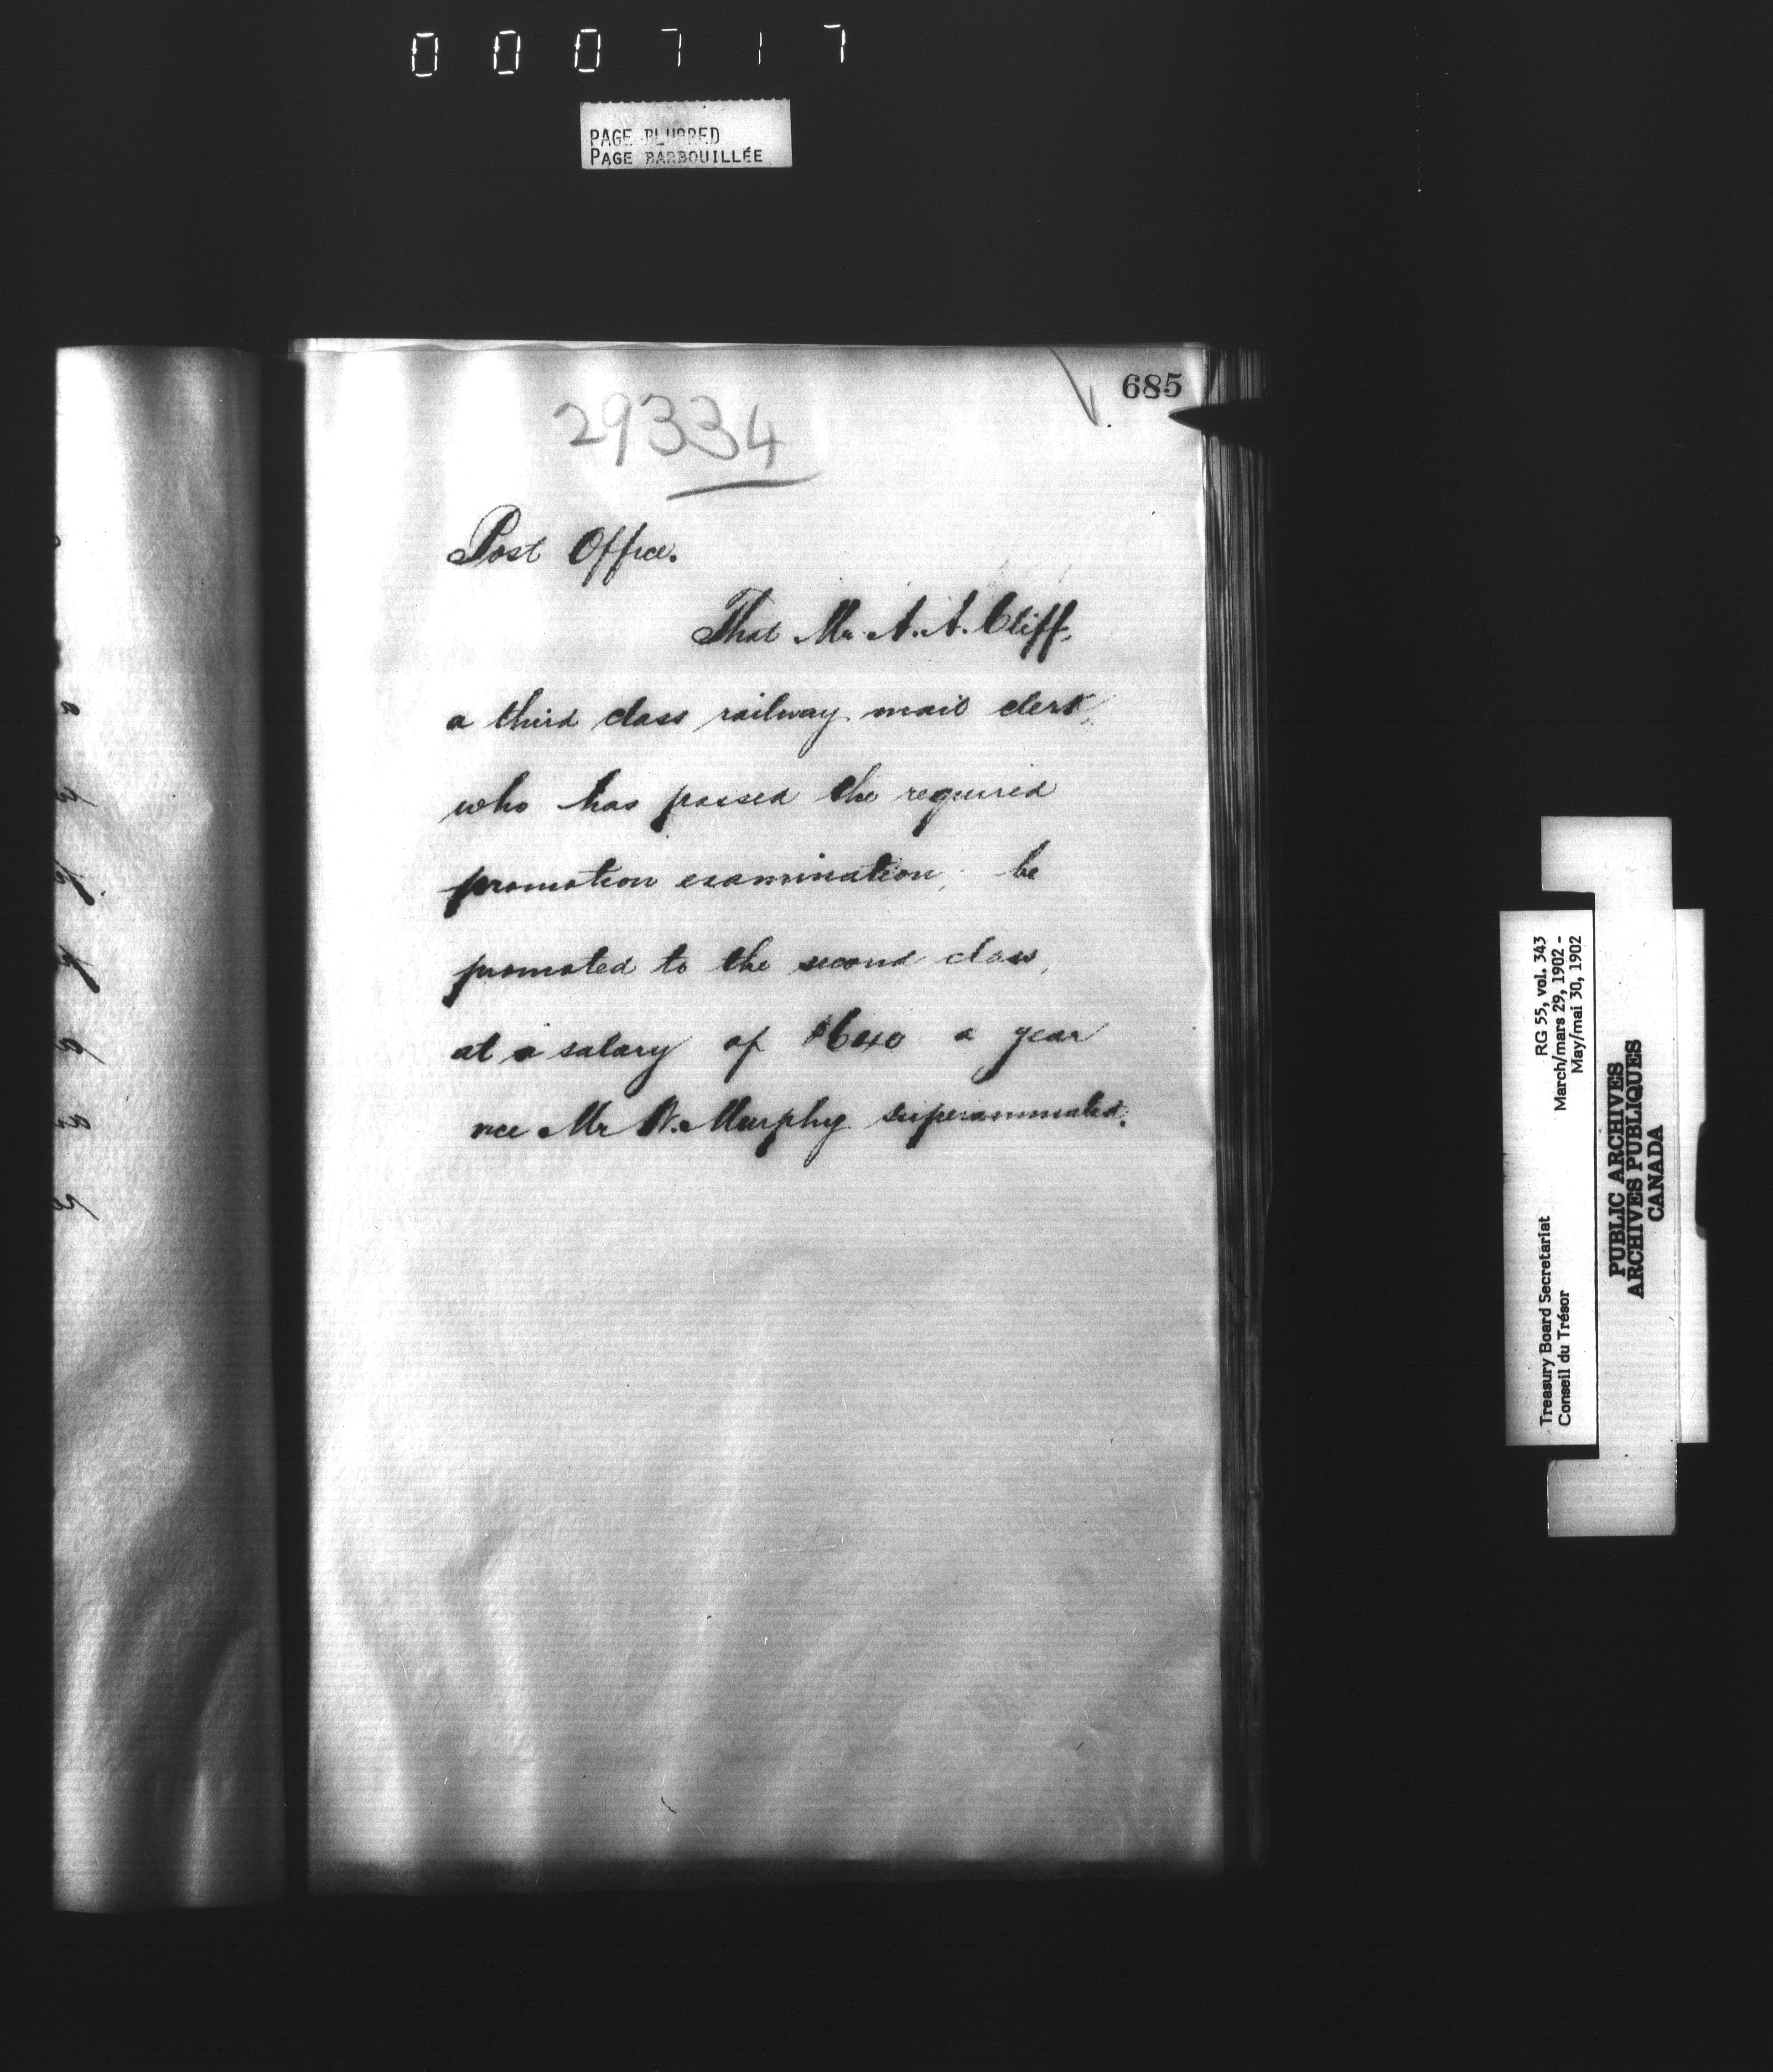 000717
PAGE BLURRED
PAGE BARBOUILLÉE
685
29334
Post Office.
That Mr. A. A. Cliff,
a third class railway mail clerk,
who has passed the required
promotion examination, be
promoted to the second class,
at a salary of $640 a year
vice Mr W. Murphy superannuated.
Treasury Board Secretariat RG 55, vol. 343
Conseil du Trésor March/mars 29, 1902 -
May/mai 30, 1902
PUBLIC ARCHIVES
ARCHIVES PUBLIQUES
CANADA